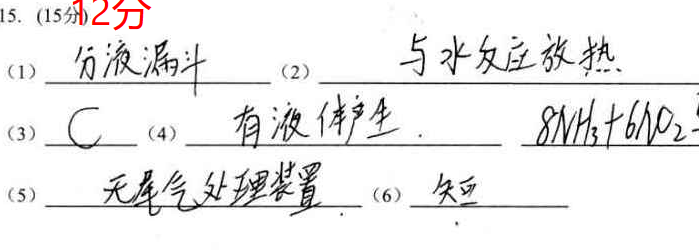 15. (15分) 12分
(1) 分液漏斗 (2) 与水反应放热
(3) C (4) 有液体产生. 8NH₃+6NO₂
(5) 无尾气处理装置. (6) 短